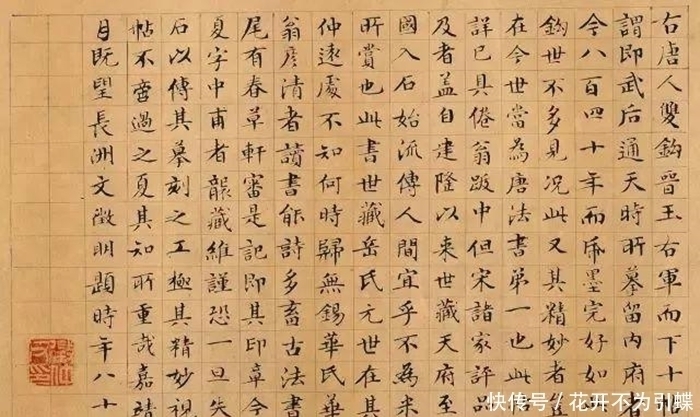 右唐人雙鈎晉王右軍而下十
謂即武后通天時所摹留内府
今八百四十年而帋墨完好如
鈎世不多見况此又其精妙者
在今世當為唐法書第一也此
詳已具倦翁跋中但宋諸家評品
及者盖自建隆以來世藏天府至
國入石始流傳人間宜乎不為米
所賞也此書世藏岳氏元世在其
仲遠處不知何時歸無錫華氏
翁彦清者讀書能詩多畜古法書
尾有春草軒審是記即其印章今
夏字中甫者襲藏維謹恐一旦失
石以傳其摹刻之工極其精妙視
帖不啻過之夏其知所重哉嘉靖
目既望長洲文徵明題時年八十
快传号 / 花开不为引蝶